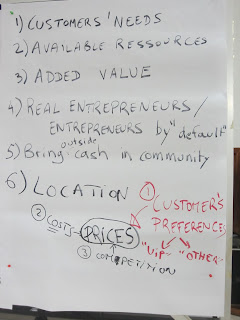 1) CUSTOMERS' NEEDS
2) AVAILABLE RESSOURCES
3) ADDED VALUE
4) REAL ENTREPRENEURS/
ENTREPRENEURS by "default"
5) Bring outside cash in community
6) LOCATION
① CUSTOMER'S
PREFERENCES
"VIP" "OTHER"
② COSTS PRICES
③ COMPETITION